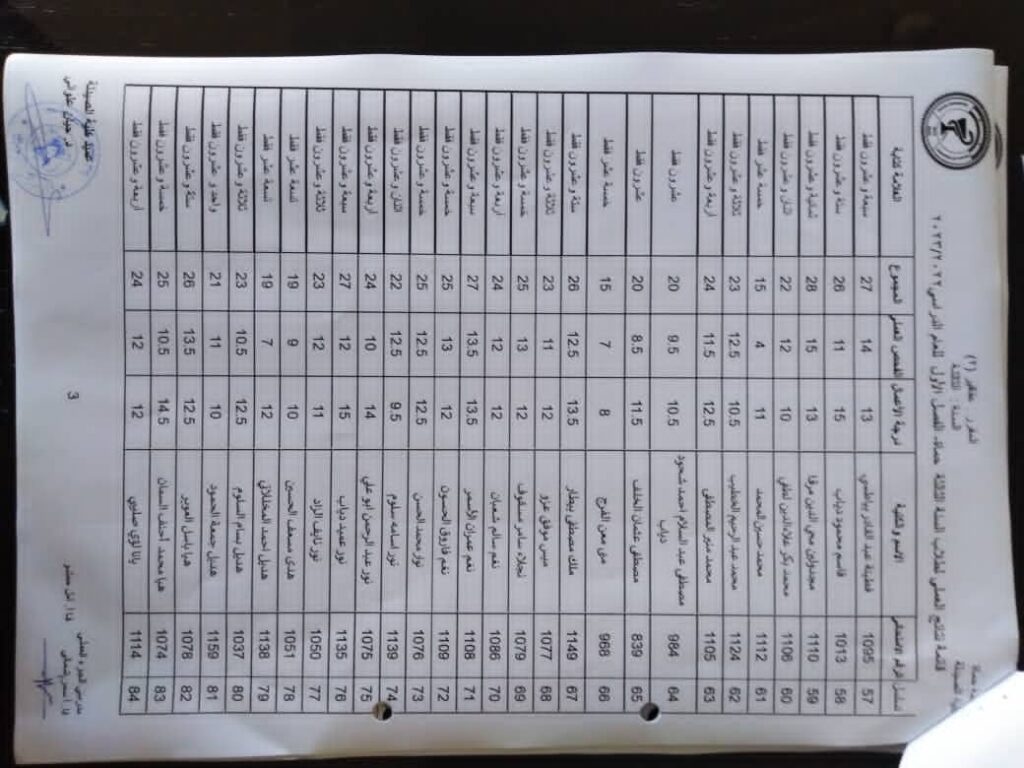 قائمة نتائج العملي لطلاب السنة الثالثة حماه، الفصل الأول للعام الدراسي ٢٠٢٣/٢٠٢٢
السنة: الثالثة
الرقم الامتحاني الاسم والكنية درجة الأعمال الفحص العملي المجموع العلامة كتابة
57 1095 فطينة عبد القادر 13 14 27 سبعة وعشرون فقط
58 1013 قاسم محمود دياب 15 11 26 ستة وعشرون فقط
59 1110 مجدولين محي الدين مرقا 13 15 28 ثمانية وعشرون فقط
60 1106 محمد بكر علاء الدين لطفي 10 12 22 اثنان وعشرون فقط
61 1112 محمد حسين المحمد 11 4 15 خمسة عشر فقط
62 1124 محمد عبد الرحيم الخطيب 10.5 12.5 23 ثلاثة وعشرون فقط
63 1105 محمد منير المصطفى 12.5 11.5 24 أربعة وعشرون فقط
64 984 مصطفى عبد السلام احمد شحود دياب 10.5 9.5 20 عشرون فقط
65 839 مصطفى عثمان الخلف 11.5 8.5 20 عشرون فقط
66 968 معن الفرج 8 7 15 خمسة عشر فقط
67 1149 ملك مصطفى بيطار 13.5 12.5 26 ستة وعشرون فقط
68 1077 ميس موفق عزو 12 11 23 ثلاثة وعشرون فقط
69 1079 نجلاء سامر مسقوف 12 13 25 خمسة وعشرون فقط
70 1086 نغم سالم شعبان 12 12 24 أربعة وعشرون فقط
71 1108 نغم عمران الأحمر 13.5 13.5 27 سبعة وعشرون فقط
72 1109 نغم فاروق الحسون 12 13 25 خمسة وعشرون فقط
73 1076 نوار محمد الحسن 12.5 12.5 25 خمسة وعشرون فقط
74 1139 نور اسامه سلوم 9.5 12.5 22 اثنان وعشرون فقط
75 1075 نور عبد الرحمن ابو علي 14 10 24 أربعة وعشرون فقط
76 1135 نور عميد دياب 15 12 27 سبعة وعشرون فقط
77 1050 نور نايف الراد 11 12 23 ثلاثة وعشرون فقط
78 1051 هدى مسعف الحسين 10 9 19 تسعة عشر فقط
79 1138 هديل احمد المخللاتي 12 7 19 تسعة عشر فقط
80 1037 هديل بسام السلوم 12.5 10.5 23 ثلاثة وعشرون فقط
81 1159 هديل جمعة الحمود 10 11 21 واحد وعشرون فقط
82 1078 هيا باسل العوير 12.5 13.5 26 ستة وعشرون فقط
83 1074 هيا محمد أحنف السمان 14.5 10.5 25 خمسة وعشرون فقط
84 1114 يانا لؤي صليبي 12 12 24 أربعة وعشرون فقط
عميد كلية الصيدلة
3